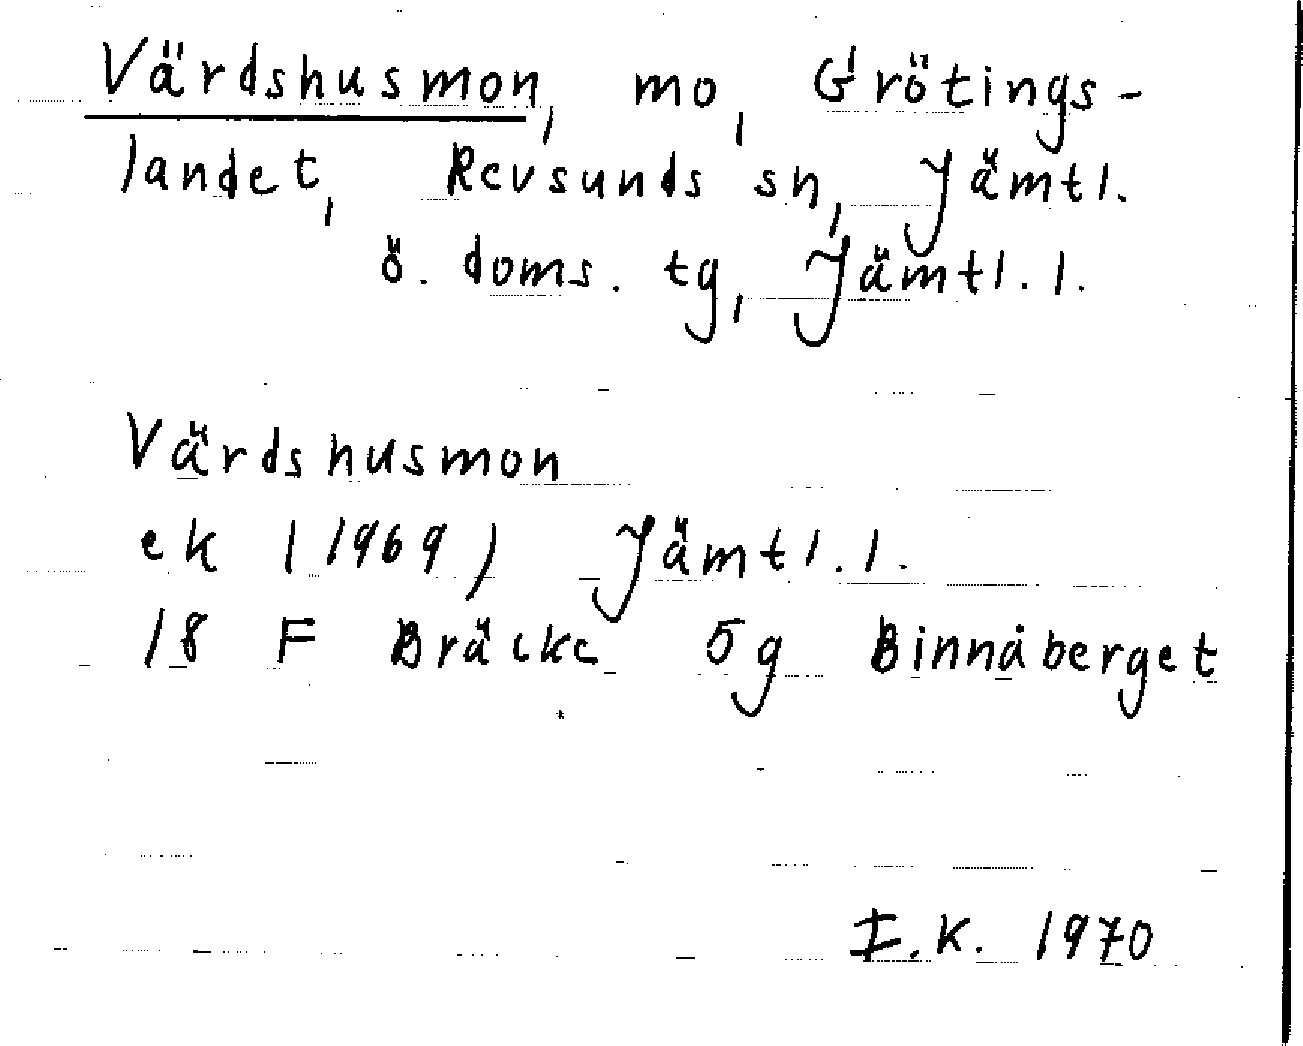 Värdshusmon, mo, Grötings-
landet, Revsunds sn, Jämtl.
ö. doms. tg, Jämtl. l.
Värdshusmon
ek (1969) Jämtl. l.
18 F Bräcke 5g Binnåberget
I.K. 1970